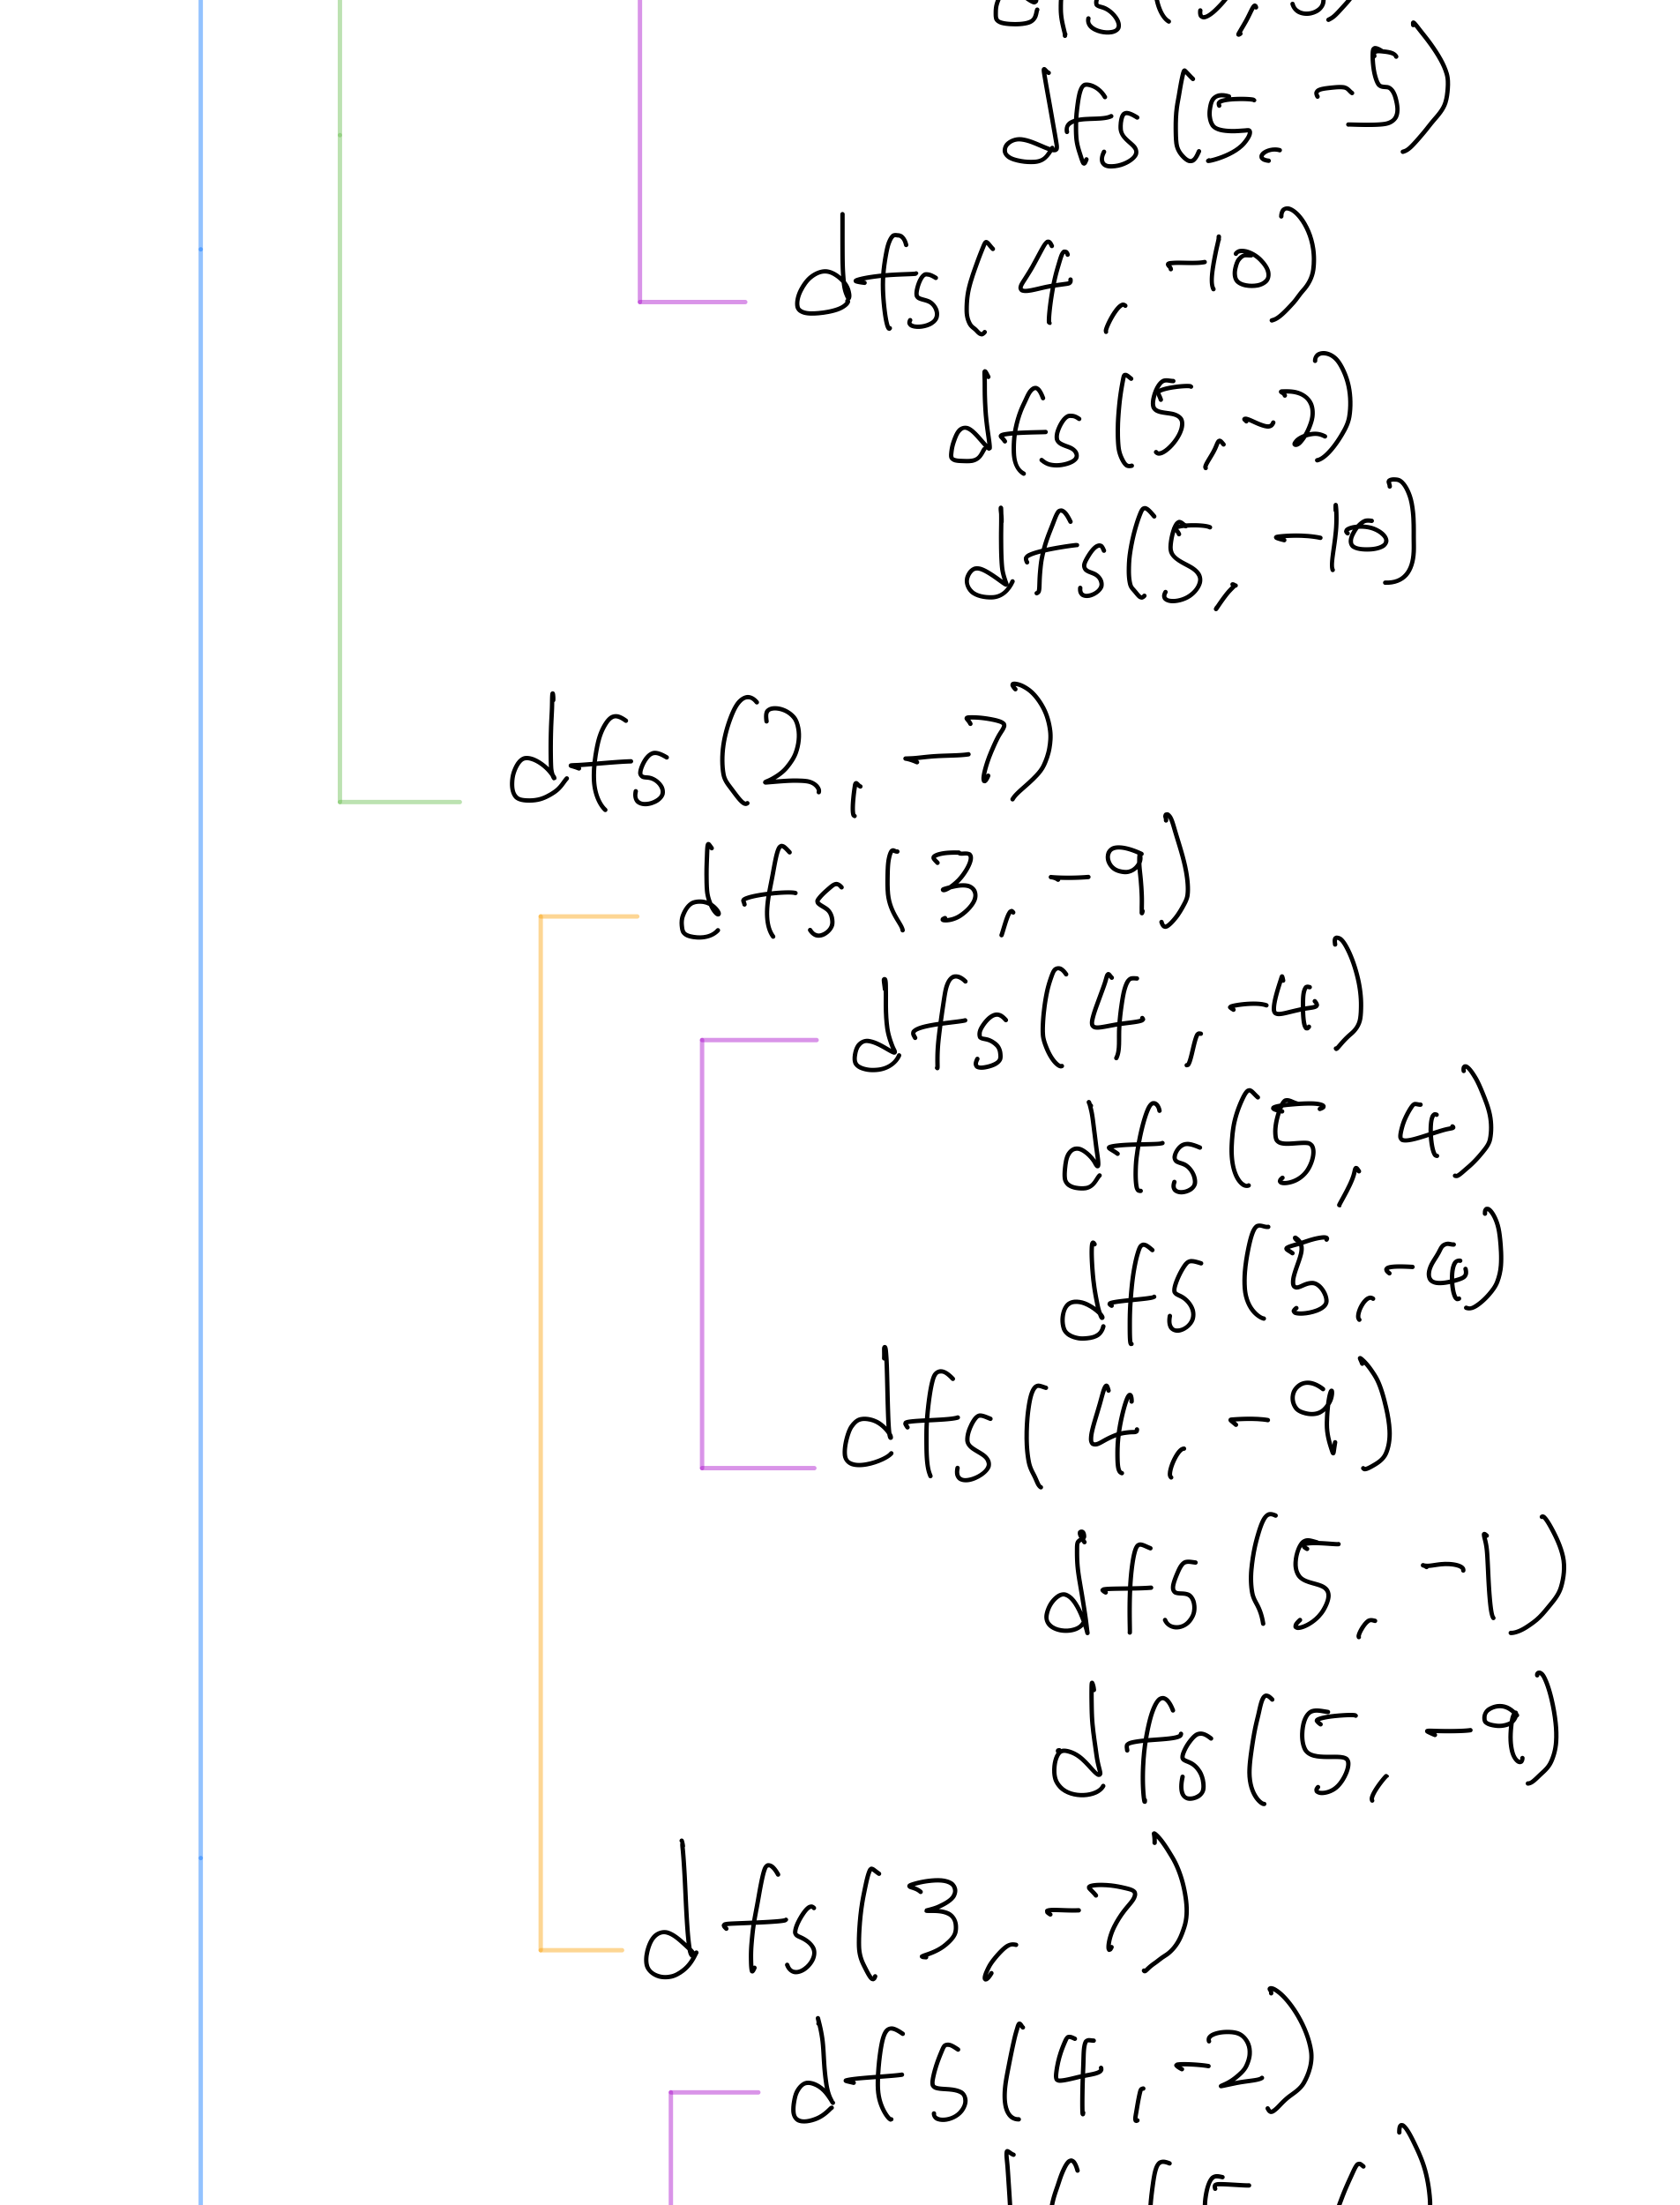 dfs (5, -5)
dfs (4, -10)
dfs (5, -2)
dfs (5, -10)
dfs (2, -7)
dfs (3, -9)
dfs (4, -4)
dfs (5, 4)
dfs (5, -4)
dfs (4, -9)
dfs (5, -1)
dfs (5, -9)
dfs (3, -7)
dfs (4, -2)